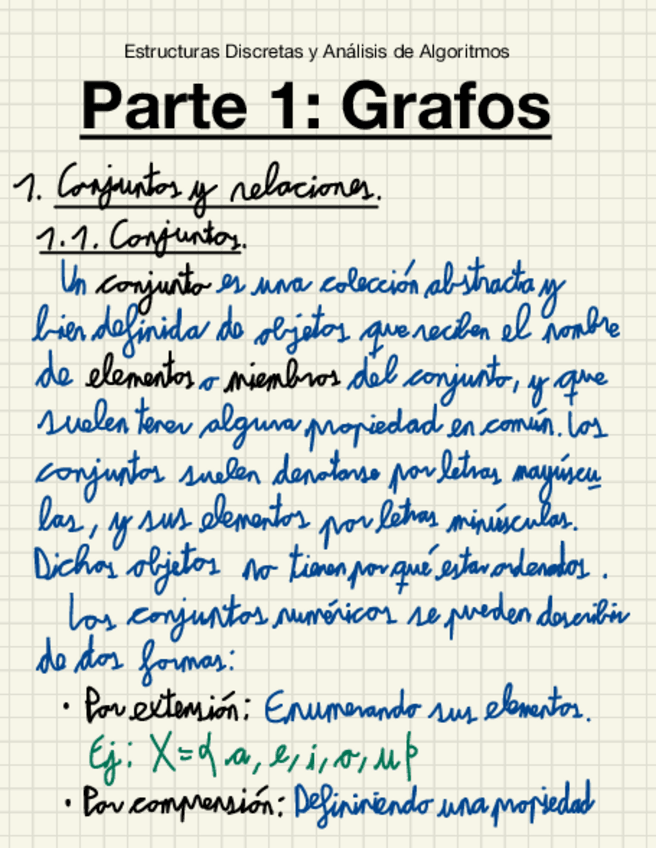 Estructuras Discretas y Análisis de Algoritmos
Parte 1: Grafos
1. Conjuntos y relaciones.
1.1. Conjuntos.
Un conjunto es una colección abstracta y
bien definida de objetos que reciben el nombre
de elementos o miembros del conjunto, y que
suelen tener alguna propiedad en común. Los
conjuntos suelen denotarse por letras mayúscu
las, y sus elementos por letras minúsculas.
Dichos objetos no tienen por qué estar ordenados.
Los conjuntos numéricos se pueden describir
de dos formas:
• Por extensión: Enumerando sus elementos.
Ej: X={a, e, i, o, u}
• Por comprensión: Defininiendo una propiedad